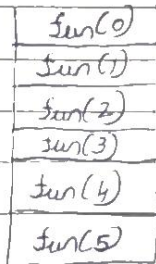 fun(0)
fun(1)
fun(2)
fun(3)
fun(4)
fun(5)